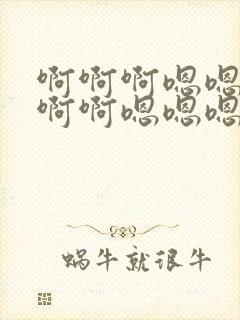 啊啊啊嗯嗯
啊啊嗯嗯嗯
蜗牛就很牛